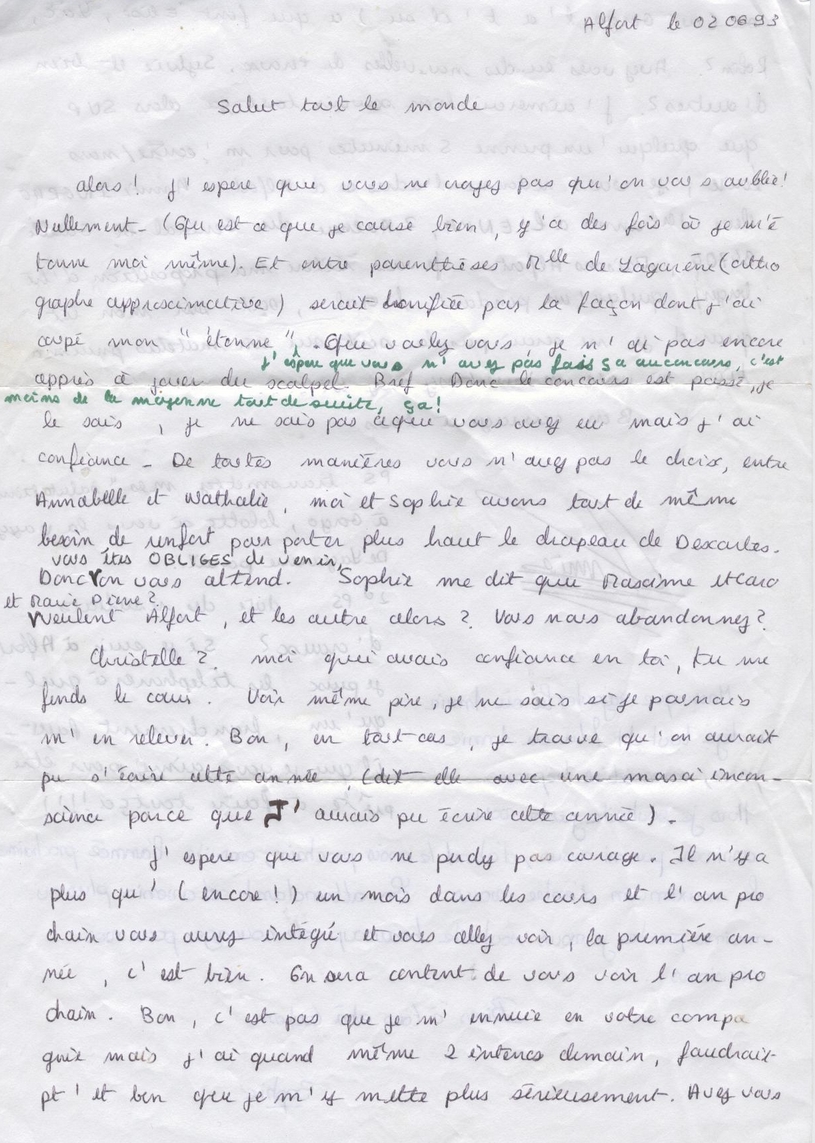 Alfort le 02 06 93
Salut tout le monde
alors ! J'espere que vous ne croyez pas qu'on vous oublie !
Nullement - (Qu est ce que je cause bien, y'a des fois où je m'é
tonne moi même). Et entre parenthèses Mlle de Lagarène (ortho
graphe approximative) serait horrifiée pas la façon dont j'ai
coupé mon "étonne". Que voulez vous je n'ai pas encore
J'espère que vous n'avez pas fais ça au concours, c'est
appris à jouer du scalpel. Bref. Donc le concours est passé, je
moins de la moyenne tout de suite, ça !
le sais, je ne sais pas ceque vous avez eu mais j'ai
confiance - De toutes manières vous n'avez pas le choix, entre
Annabelle et Nathalie, moi et Sophie avons tout de même
besoin de renfort pour porter plus haut le drapeau de Descartes.
vous êtes OBLIGES de venir,
Donc on vous attend. Sophie me dit que Maxime et Caro
et Marie Pierre ?
veulent Alfort, et les autre alors ? Vous nous abandonnez ?
Christelle ? moi qui avais confiance en toi, tu me
fends le cœur. Voir même pire, je ne sais si je parviens
m'en relever. Bon, en tout cas, je trouve qu'on aurait
pu s'écrire cette année, (dit elle avec une incon-
science parce que J'aurais pu écrire cette année) -
J'espere que vous ne perdez pas courage. Il n'y a
plus qu' (encore !) un mois dans les cours et l'an pro
chain vous aurez intégré et vous allez voir, la première an-
née, c'est bien. On sera content de vous voir l'an pro
chain. Bon, c'est pas que je m'ennuie en votre compa
gnie mais j'ai quand même 2 interros demain, faudrait
pt'et ben que je m'y mette plus sérieusement. Avez vous